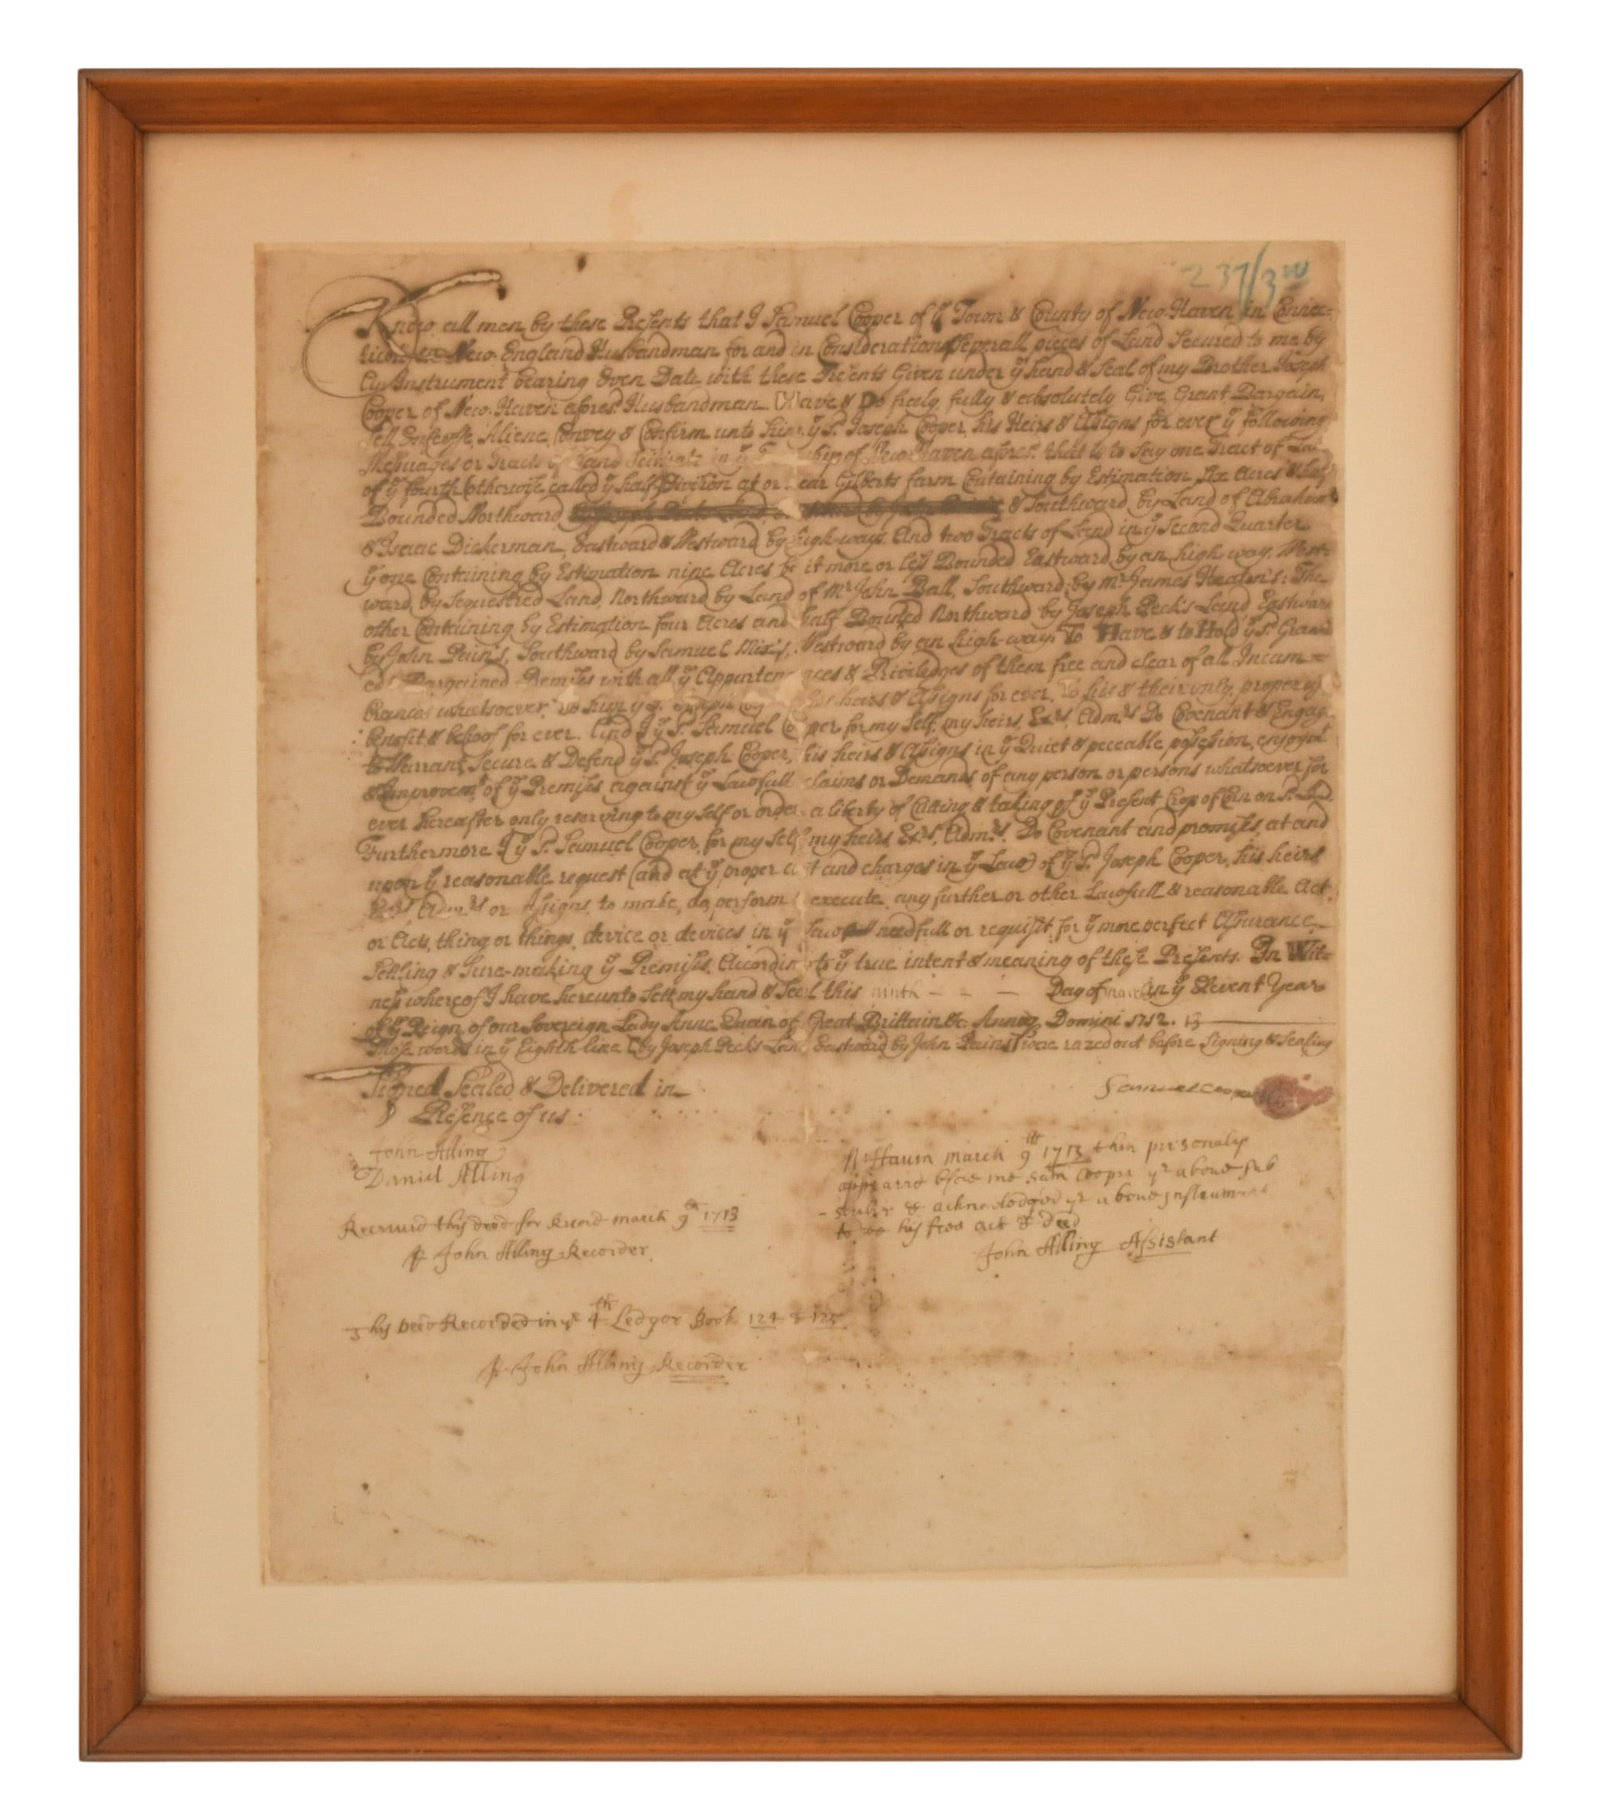 237/3
Know all men by these Presents that I Samuel Cooper of yᵉ Town & County of New-Haven in Connec=
ticutt in New-England Husbandman for and in Consideration Severall pieces of Land Secured to me by
an Instrument bearing Even Date with these Presents Given under yᵉ hand & Seal of my Brother Joseph
Cooper of New-Haven aforesᵈ Husbandman Have & Do freely fully & absolutely Give Grant Bargain,
Sell Enfeoffe, Aliene, Convey & Confirm unto him yᵉ sᵈ Joseph Cooper, his Heirs & Assigns for ever yᵉ following
Messuages or Tracts of Land Scituate in yᵉ ship of New-Haven aforesᵈ that is to Say one Tract of
of yᵉ fourth (otherwise called yᵉ half-Division at or ear Gilberts farm Containing by Estimation Six Acres & half
Bounded Northward & Southward by Land of Abraham
& Isaac Dickerman, Eastward & Westward by high-ways. And two Tracts of Land in yᵉ Second Quarter
yᵉ one Containing by Estimation nine Acres be it more or less Bounded Eastward by an high-way, West=
ward by Sequestred Land, Northward by Land of Mʳ John Ball, Southward by Mʳ James Heaton's: The
other Containing by Estimation four Acres and half Bounded Northward by Joseph Peck's Land Eastward
by John Pain's, Southward by Samuel Mix's, Westward by an high-way. To Have & to Hold yᵉ sᵈ Grant
ed & Bargained Premises with all yᵉ Appurten nces & Priviledges of them free and clear of all Incum=
brances whatsoever to him yᵉ sᵈ Joseph his heirs & Assigns for ever, to his & their only, proper
benefit & behoof for ever. And I yᵉ sᵈ Samuel Co per for my Self, my heirs Exʳˢ, Admʳˢ Do Covenant & Engag
to Warrant Secure & Defend yᵉ sᵈ Joseph Cooper, his heirs & Assigns in yᵉ Quiet & peceable possession, enjoymᵗ
& improvemᵗ of yᵉ Premises against yᵉ Lawfull claims or Demands of any person or persons whatsoever for
ever hereafter only reserving to my self or order a liberty of Cutting & taking off yᵉ Present Crop of Corn on sᵈ Land.
Furthermore I yᵉ sᵈ Samuel Cooper, for my Self my heirs Exʳˢ, Admʳˢ. Do Covenant and promise, at and
upon yᵉ reasonable request (and at yᵉ proper co t and charges in yᵉ Law) of yᵉ sᵈ Joseph Cooper, his heirs
Exʳˢ Admʳˢ or Assigns, to make, do, perform & execute, any further or other Lawfull & reasonable Act
or Acts, thing or things, device or devices in yᵉ Law needfull or requisit for yᵉ more perfect Assurance
Settling & Sure-making yᵉ Premises, Accordin to yᵉ true intent & meaning of these Presents. In Wit=
ness whereof I have hereunto Sett my hand & Seal this ninth - - - Day of march in yᵉ Elevent Year
of yᵉ Reign of our Sovereign Lady Anne Quein of Great Brittain &c. Annoq Domini 1712. 13
Those words in yᵉ Eighth line (by Joseph Pecks Land Eastward by John Pains) were razed out before Signing & Sealing
Signed Sealed & Delivered in
Presence of us.
Samuel Cooper
John Alling
Daniel Alling
N Haven march 9ᵗʰ 1713 then personaly
appeard before me Sam Cooper yᵉ above Sub
-scriber & acknowledged yᵉ above Instrument
to be his free act & deed
John Alling Assistant
Received this deed for Record march 9ᵗʰ 1713
ꝑ John Alling Recorder
This Deed Recorded in yᵉ 4ᵗʰ Ledger Book 124 & 125
ꝑ John Alling Recorder